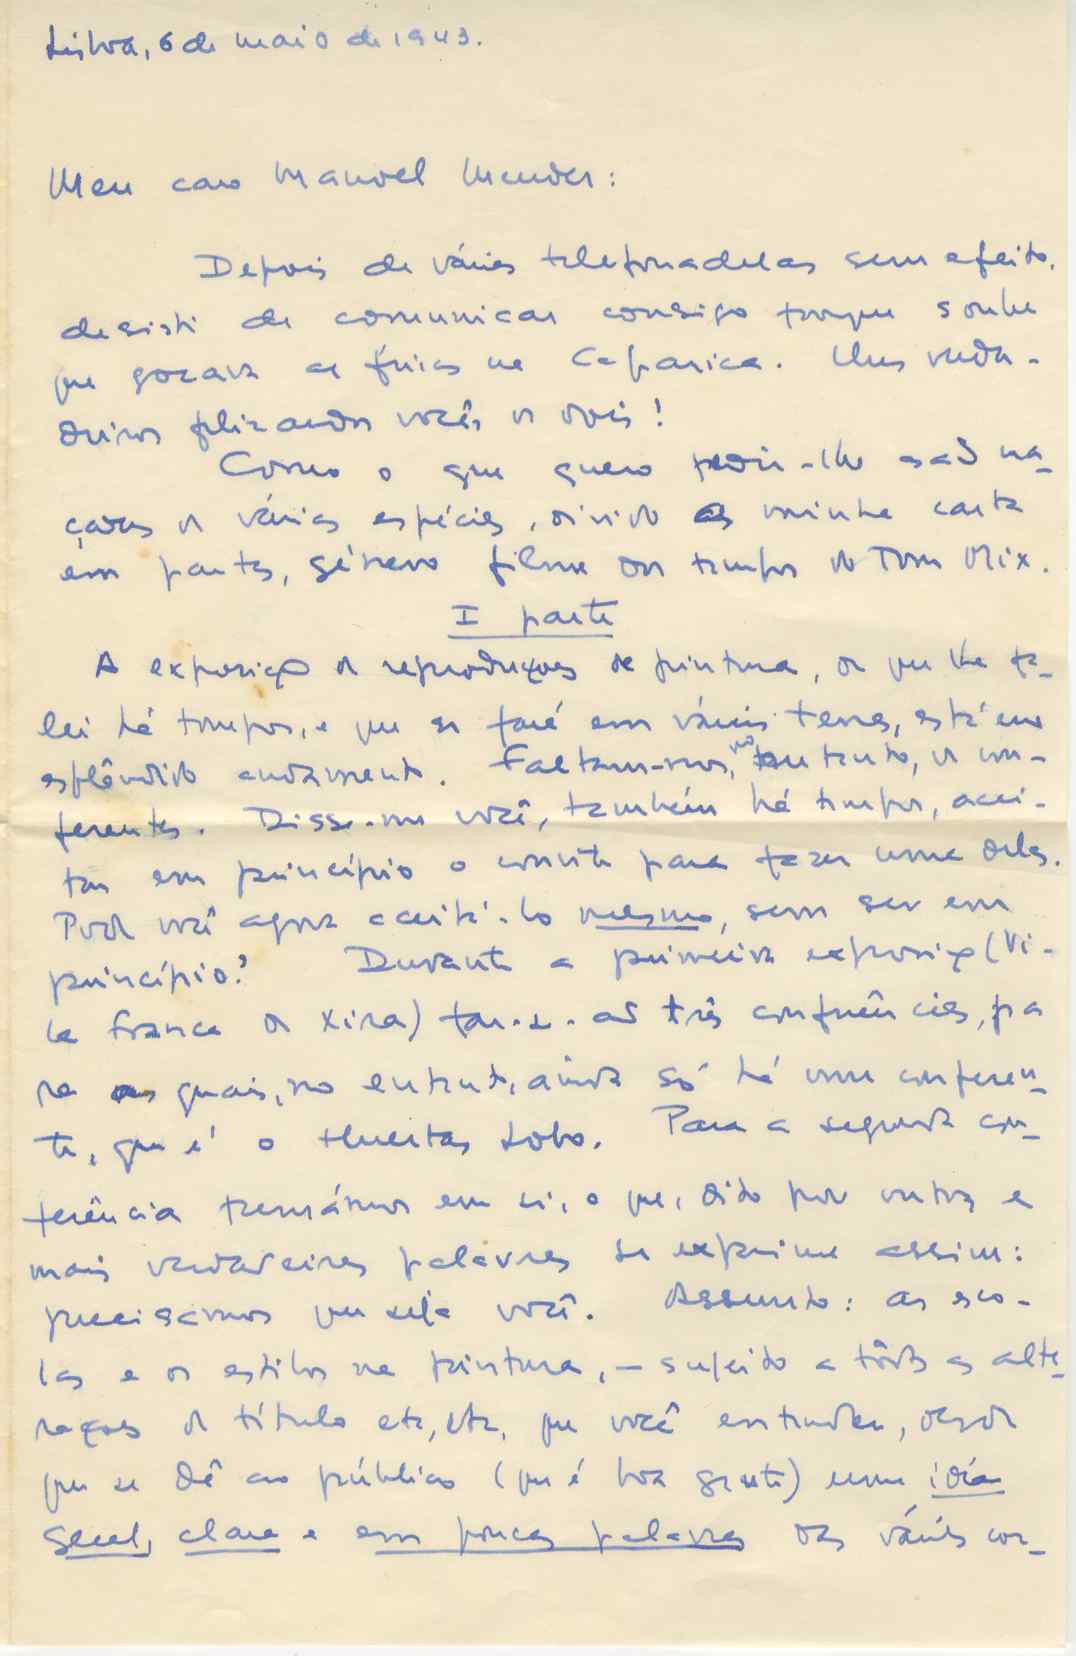 Lisboa, 6 de maio de 1943.
Meu caro Manuel Mendes:
Depois de várias telefonadelas sem efeito,
desisti de comunicar consigo porque soube
que gozava as férias na Caparica. Uns verda-
deiros felizardos vocês os dois!
Como o que quero pedir-lhe são ma-
çadas de várias espécies, divido a minha carta
em partes, género filme dos tempos do Tom Mix.
I parte
A exposição de reproduções de pintura, de que lhe fa-
lei há tempos, e que se fará em várias terras, está em
esplêndido andamento. Faltam-nos, no entanto, os con-
ferentes. Disse-me você, também há tempos, acei-
tar em princípio o convite para fazer uma delas.
Pode você agora aceitá-lo mesmo, sem ser em
princípio? Durante a primeira exposição (Vi-
la Franca de Xira) far-se-ão três conferências, pa
ra as quais, no entanto, ainda só há um conferen-
te, que é o Huertas Lobo. Para a segunda con-
ferência pensámos em si, o que, dito por outras e
mais verdadeiras palavras se exprime assim:
precisamos que seja você. Assunto: as esco-
las e os estilos na pintura, - sujeito a tôdas as alte-
rações de título etc, etc, que você entender, desde
que se dê ao público (que é boa gente) uma idéia
geral, clara e em poucas palavras das várias cor-